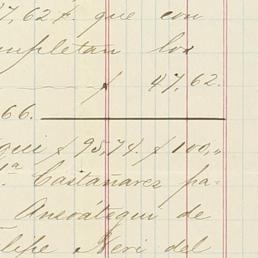 47,62 ₰. que con
mpletan los
₰ 47,62.
66.
qui ₰ 95,74. ₰ 100,,
Castañares pa-
Aneoátegui de
elipe Neri del